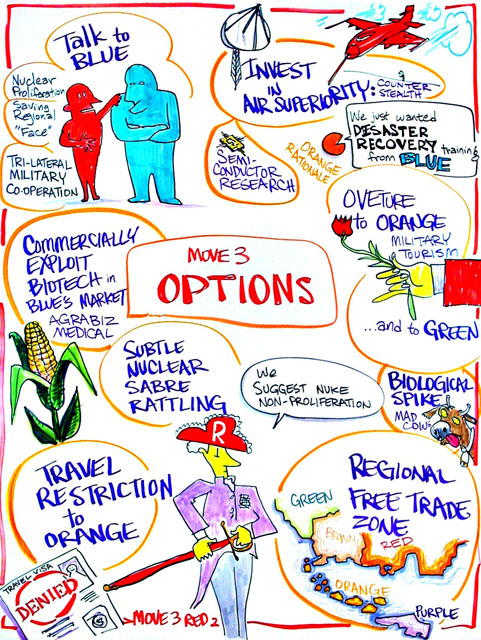 Talk to
BLUE
Nuclear
Proliferation
Saving
Regional
"Face"
TRI-LATERAL
MILITARY
CO-OPERATION
INVEST
IN
AIR SUPERIORITY:
COUNTER
STEALTH
SEMI-
CONDUCTOR
RESEARCH
ORANGE
RATIONALE
We just wanted
DESASTER
RECOVERY training
from BLUE
OVETURE
to ORANGE
MILITARY
TOURISM
...and to GREEN
COMMERCIALLY
EXPLOIT
BIOTECH in
BLUE'S MARKET
AGRABIZ
MEDICAL
MOVE 3
OPTIONS
SUBTLE
NUCLEAR
SABRE
RATTLING
We
SUGGEST NUKE
NON-PROLIFERATION
BIOLOGICAL
SPIKE
MAD
COWS
R
TRAVEL
RESTRICTION
to
ORANGE
TRAVEL VISA
DENIED
REGIONAL
FREE TRADE
ZONE
GREEN
BROWN
RED
ORANGE
PURPLE
MOVE 3 RED 2